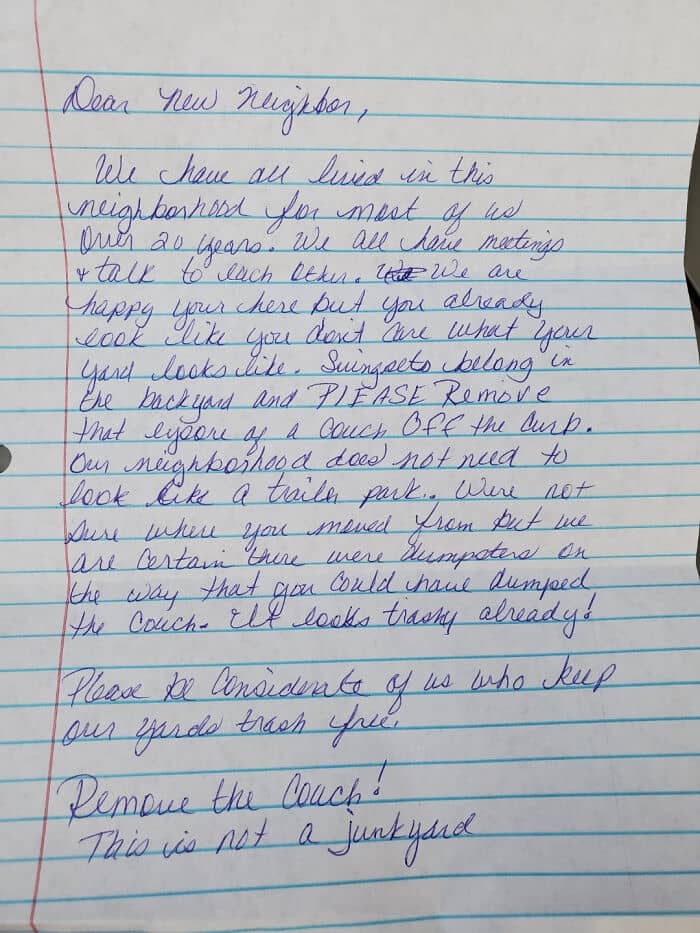 Dear new neighbor,
We have all lived in this
neighborhood for most of us
over 20 years. We all have meetings
& talk to each other. We are
happy your here but you already
look like you don't care what your
yard looks like. Swingsets belong in
the backyard and PLEASE Remove
that eysore of a couch OFF the curb.
Our neighborhood does not need to
look like a trailer park.. Were not
sure where you moved from but we
are certain there were dumpsters on
the way that you could have dumped
the couch. It looks trashy already!
Please be considerate of us who keep
our yards trash free.
Remove the couch!
This is not a junkyard